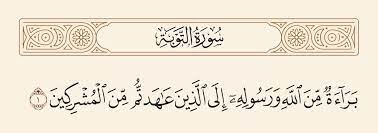 سُورَةُ التَّوْبَةِ
بَرَآءَةٌ مِّنَ ٱللَّهِ وَرَسُولِهِۦٓ إِلَى ٱلَّذِينَ عَٰهَدتُّم مِّنَ ٱلْمُشْرِكِينَ ١